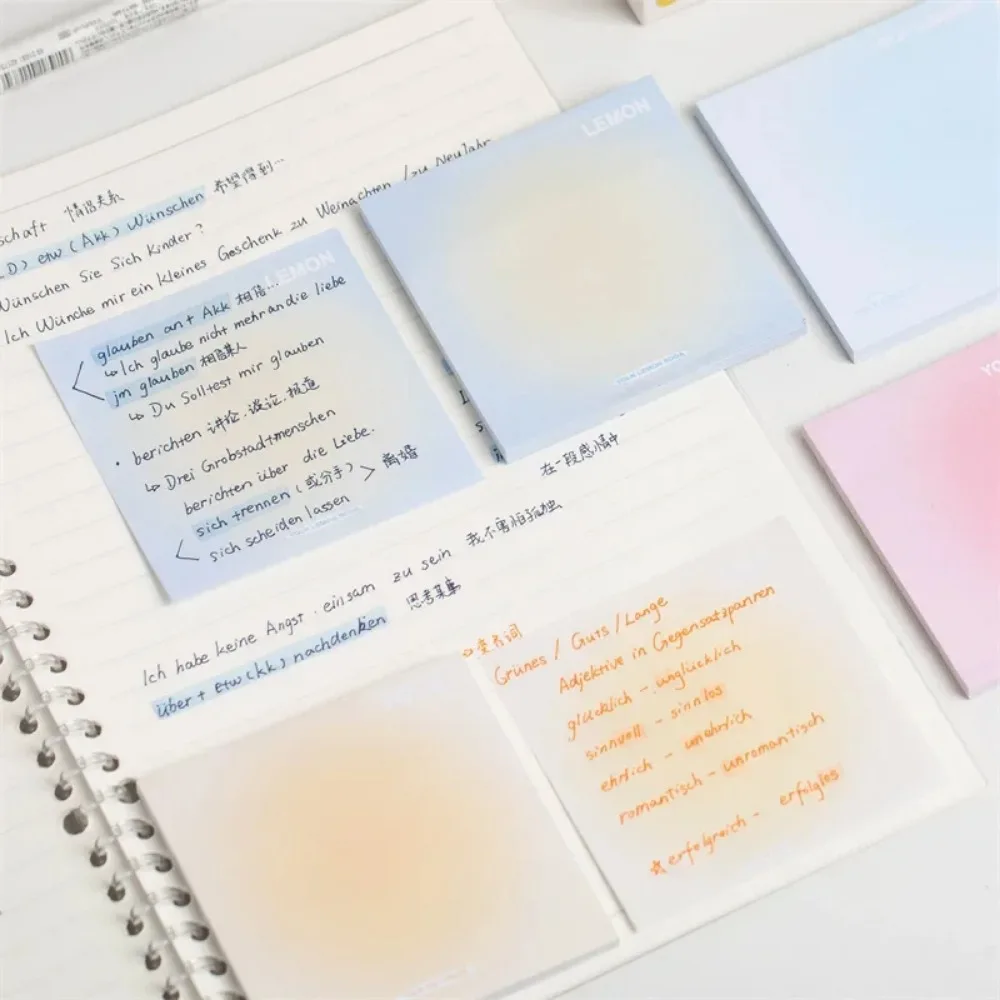 schaft 情侣关系
D) etw (Akk) Wünschen 希望得到…
Wünschen Sie Sich Kinder?
Ich Wünche mir ein kleines Geschenk zu Weinachten / zu Neujahr
LEMON
glauben an + Akk 相信…
↳ Ich glaube nicht mehr an die liebe
jm glauben 相信某人
↳ Du Solltest mir glauben
• berichten 讲论.谈论.报道
↳ Drei Grobstadtmenschen
berichten über die Liebe.
sich trennen (或分手) > 离婚
sich scheiden lassen
LEMON
YOUR LEMON SODA
在一段感情中
Ich habe keine Angst . einsam zu sein 我不害怕孤独
über + etw (kk) nachdenken 思考某事
变名词
Grünes / Guts / Lange
Adjektive in Gegensatzpanren
glücklich - unglücklich
sinnvoll - sinnlos
ehrlich - unehrlich
romantisch - unromantisch
☆ erfolgreich - erfolglos
YO